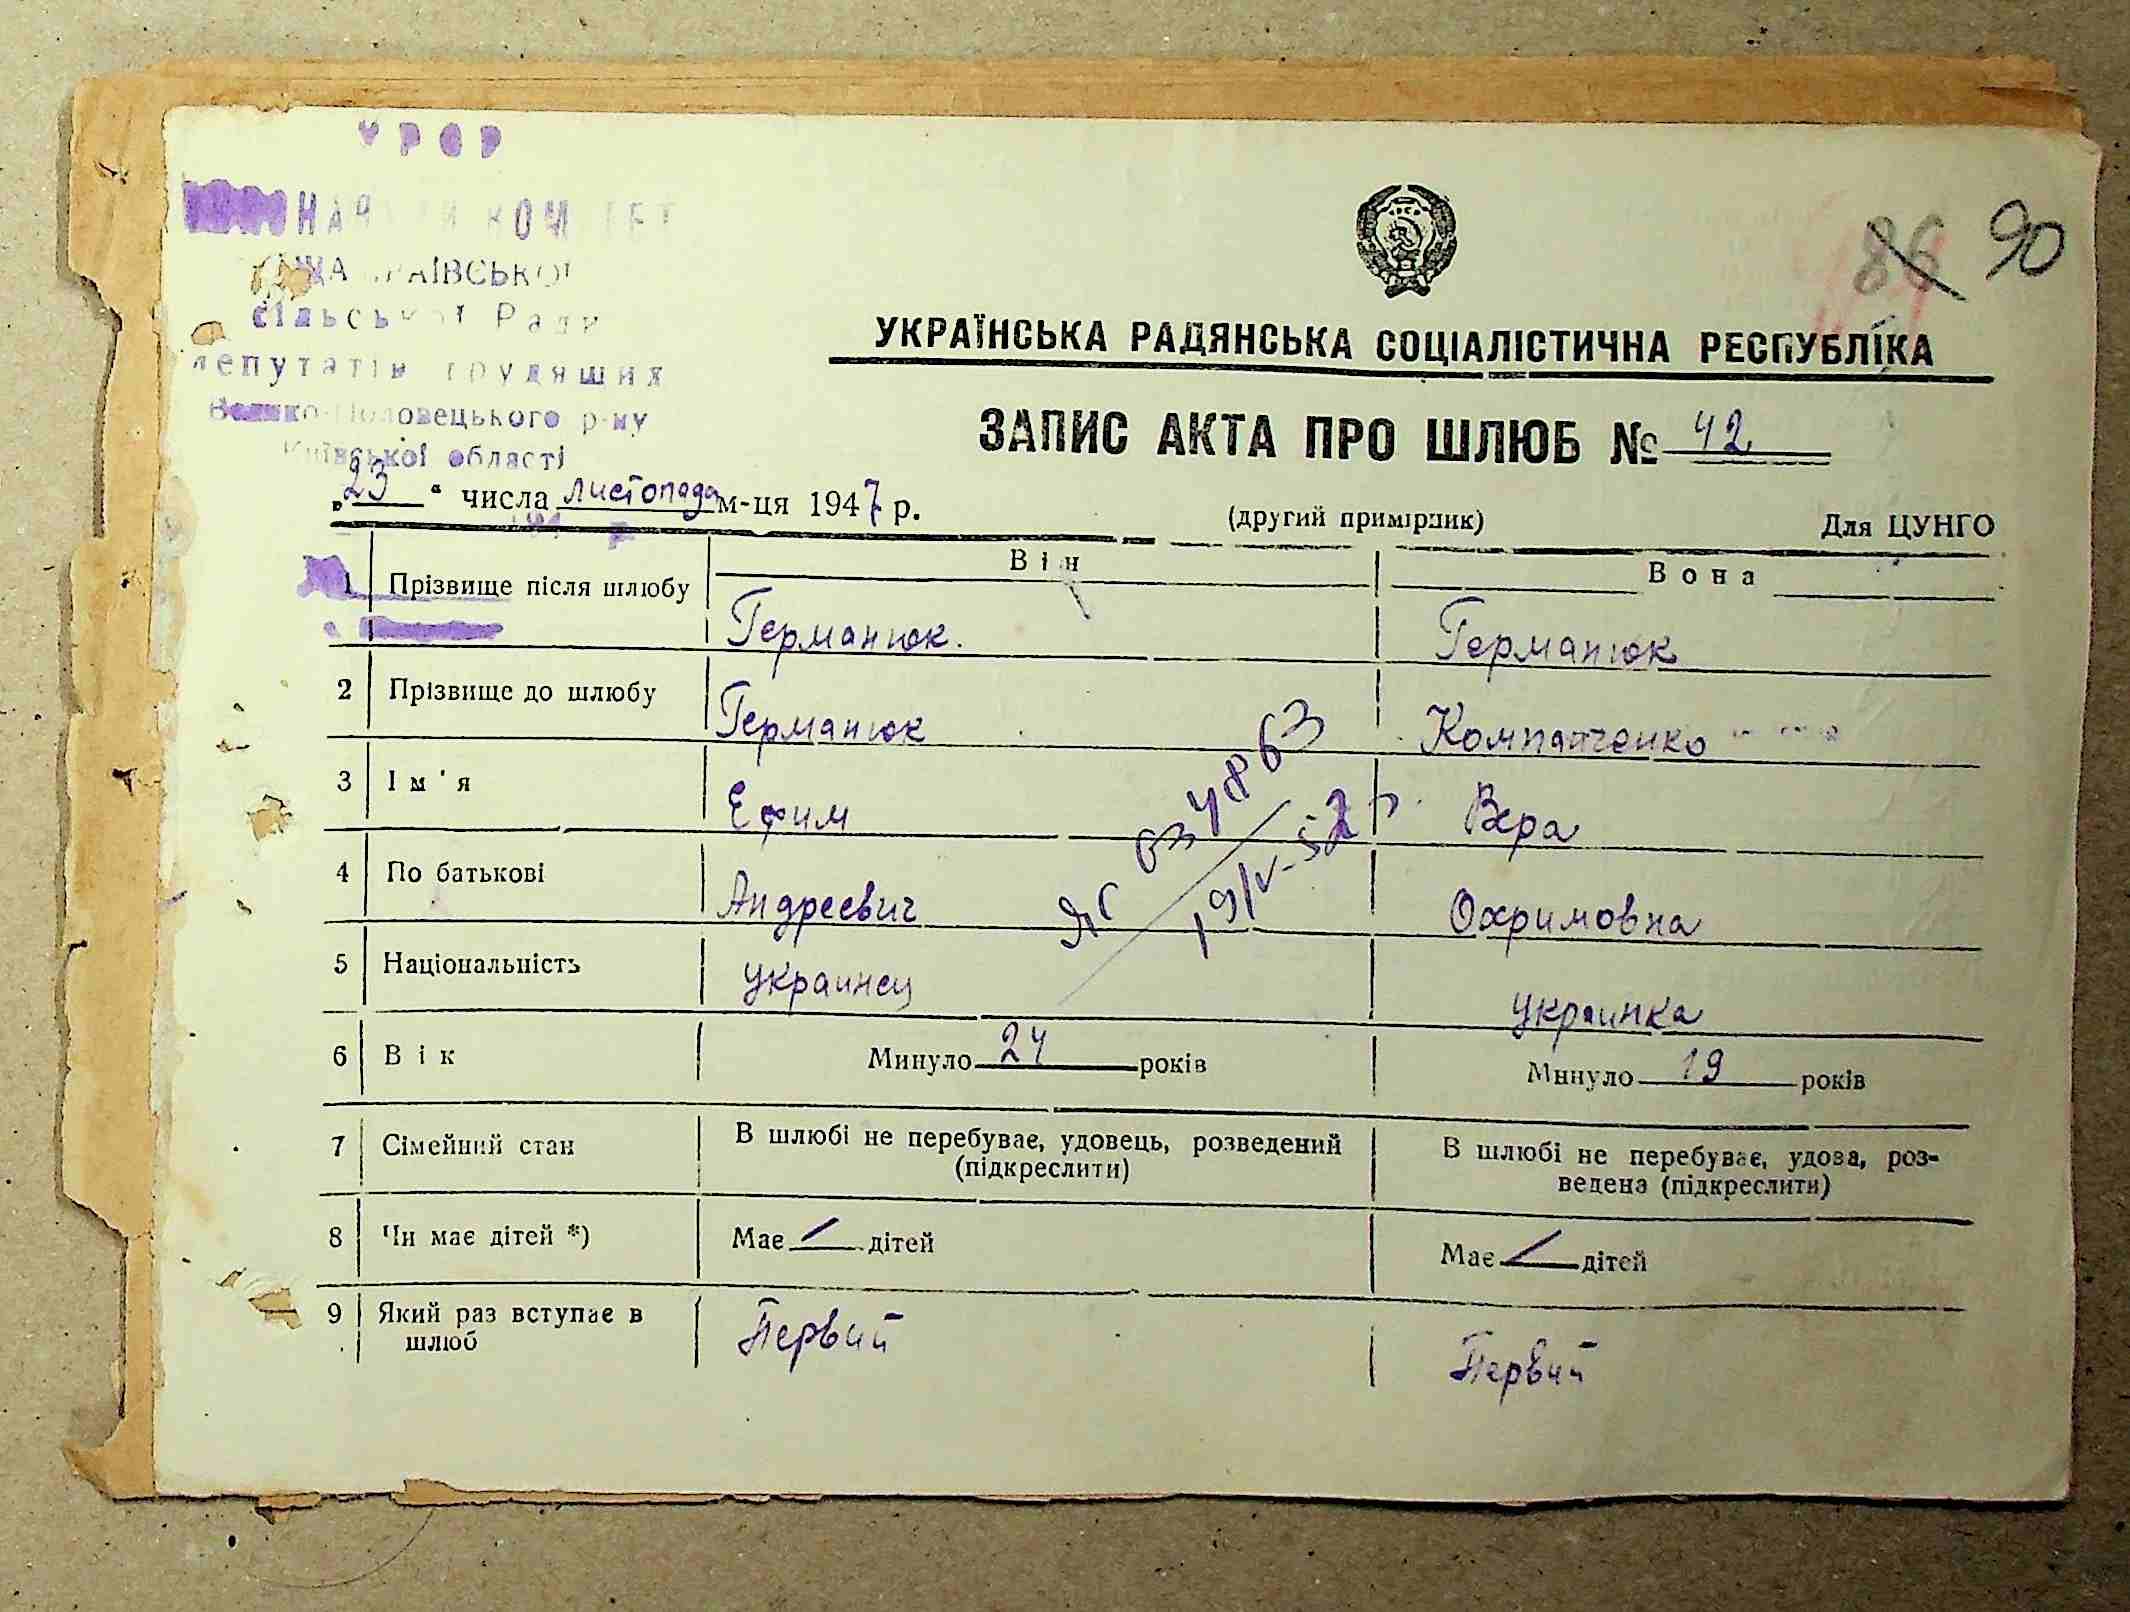 УРСР
КОМІТЕТ
сільської Ради
депутатів трудящих
Велико-Половецького р-ну
Київської області
86 90
УКРАЇНСЬКА РАДЯНСЬКА СОЦІАЛІСТИЧНА РЕСПУБЛІКА
ЗАПИС АКТА ПРО ШЛЮБ № 42
„23“ числа листопада м-ця 1947 р.
(другий примірник)
Для ЦУНГО
Він Вона
1 Прізвище після шлюбу Германюк. Германюк
2 Прізвище до шлюбу Германюк Компанченко
3 Ім'я Ефим Вера
4 По батькові Андреевич Охримовна
5 Національність украинец украинка
6 Вік Минуло 24 років Минуло 19 років
7 Сімейний стан В шлюбі не перебуває, удовець, розведений (підкреслити) В шлюбі не перебуває, удова, роз-
ведена (підкреслити)
8 Чи має дітей *) Має — дітей Має — дітей
9 Який раз вступає в Первий Первий
шлюб
034863
19/V-52 р.